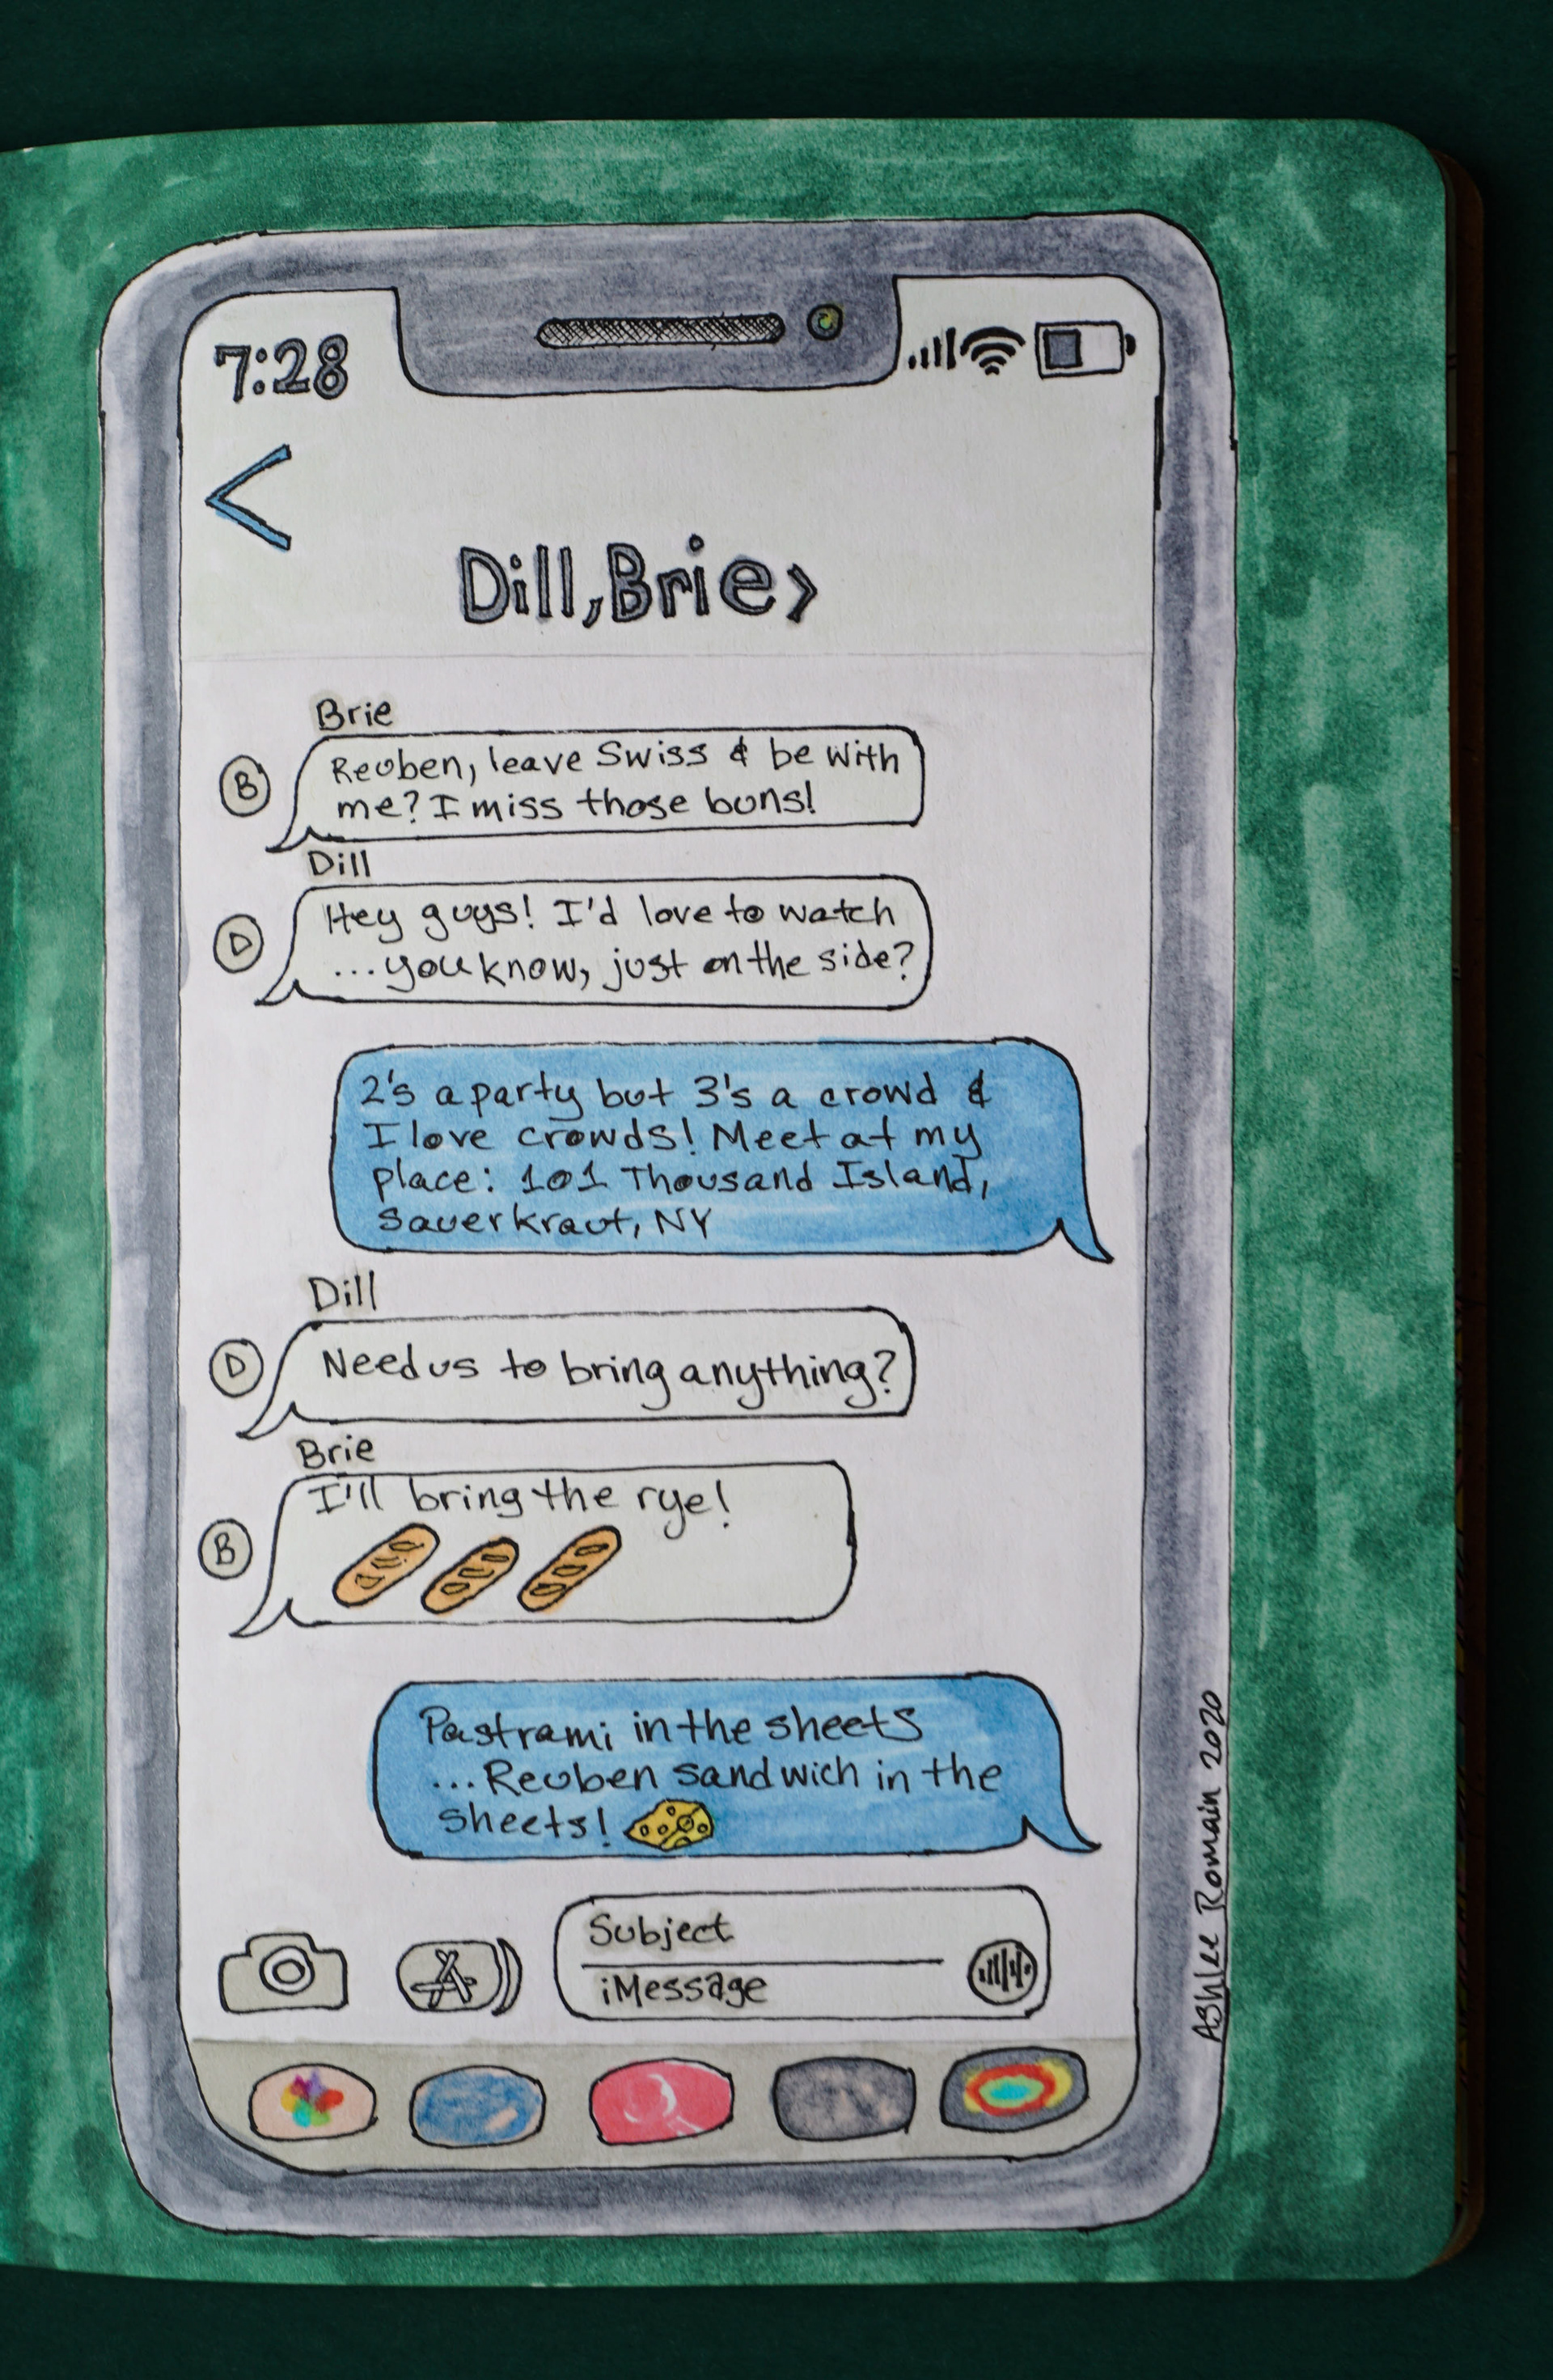 7:28
Dill, Brie >
Brie
B
Reuben, leave Swiss & be with
me? I miss those buns!
Dill
D
Hey guys! I'd love to watch
...you know, just on the side?
2's a party but 3's a crowd &
I love crowds! Meet at my
place: 101 Thousand Island,
Sauerkraut, NY
Dill
D
Need us to bring anything?
Brie
B
I'll bring the rye!
Pastrami in the sheets
...Reuben sandwich in the
sheets!
Subject
iMessage
Ashlee Romain 2020